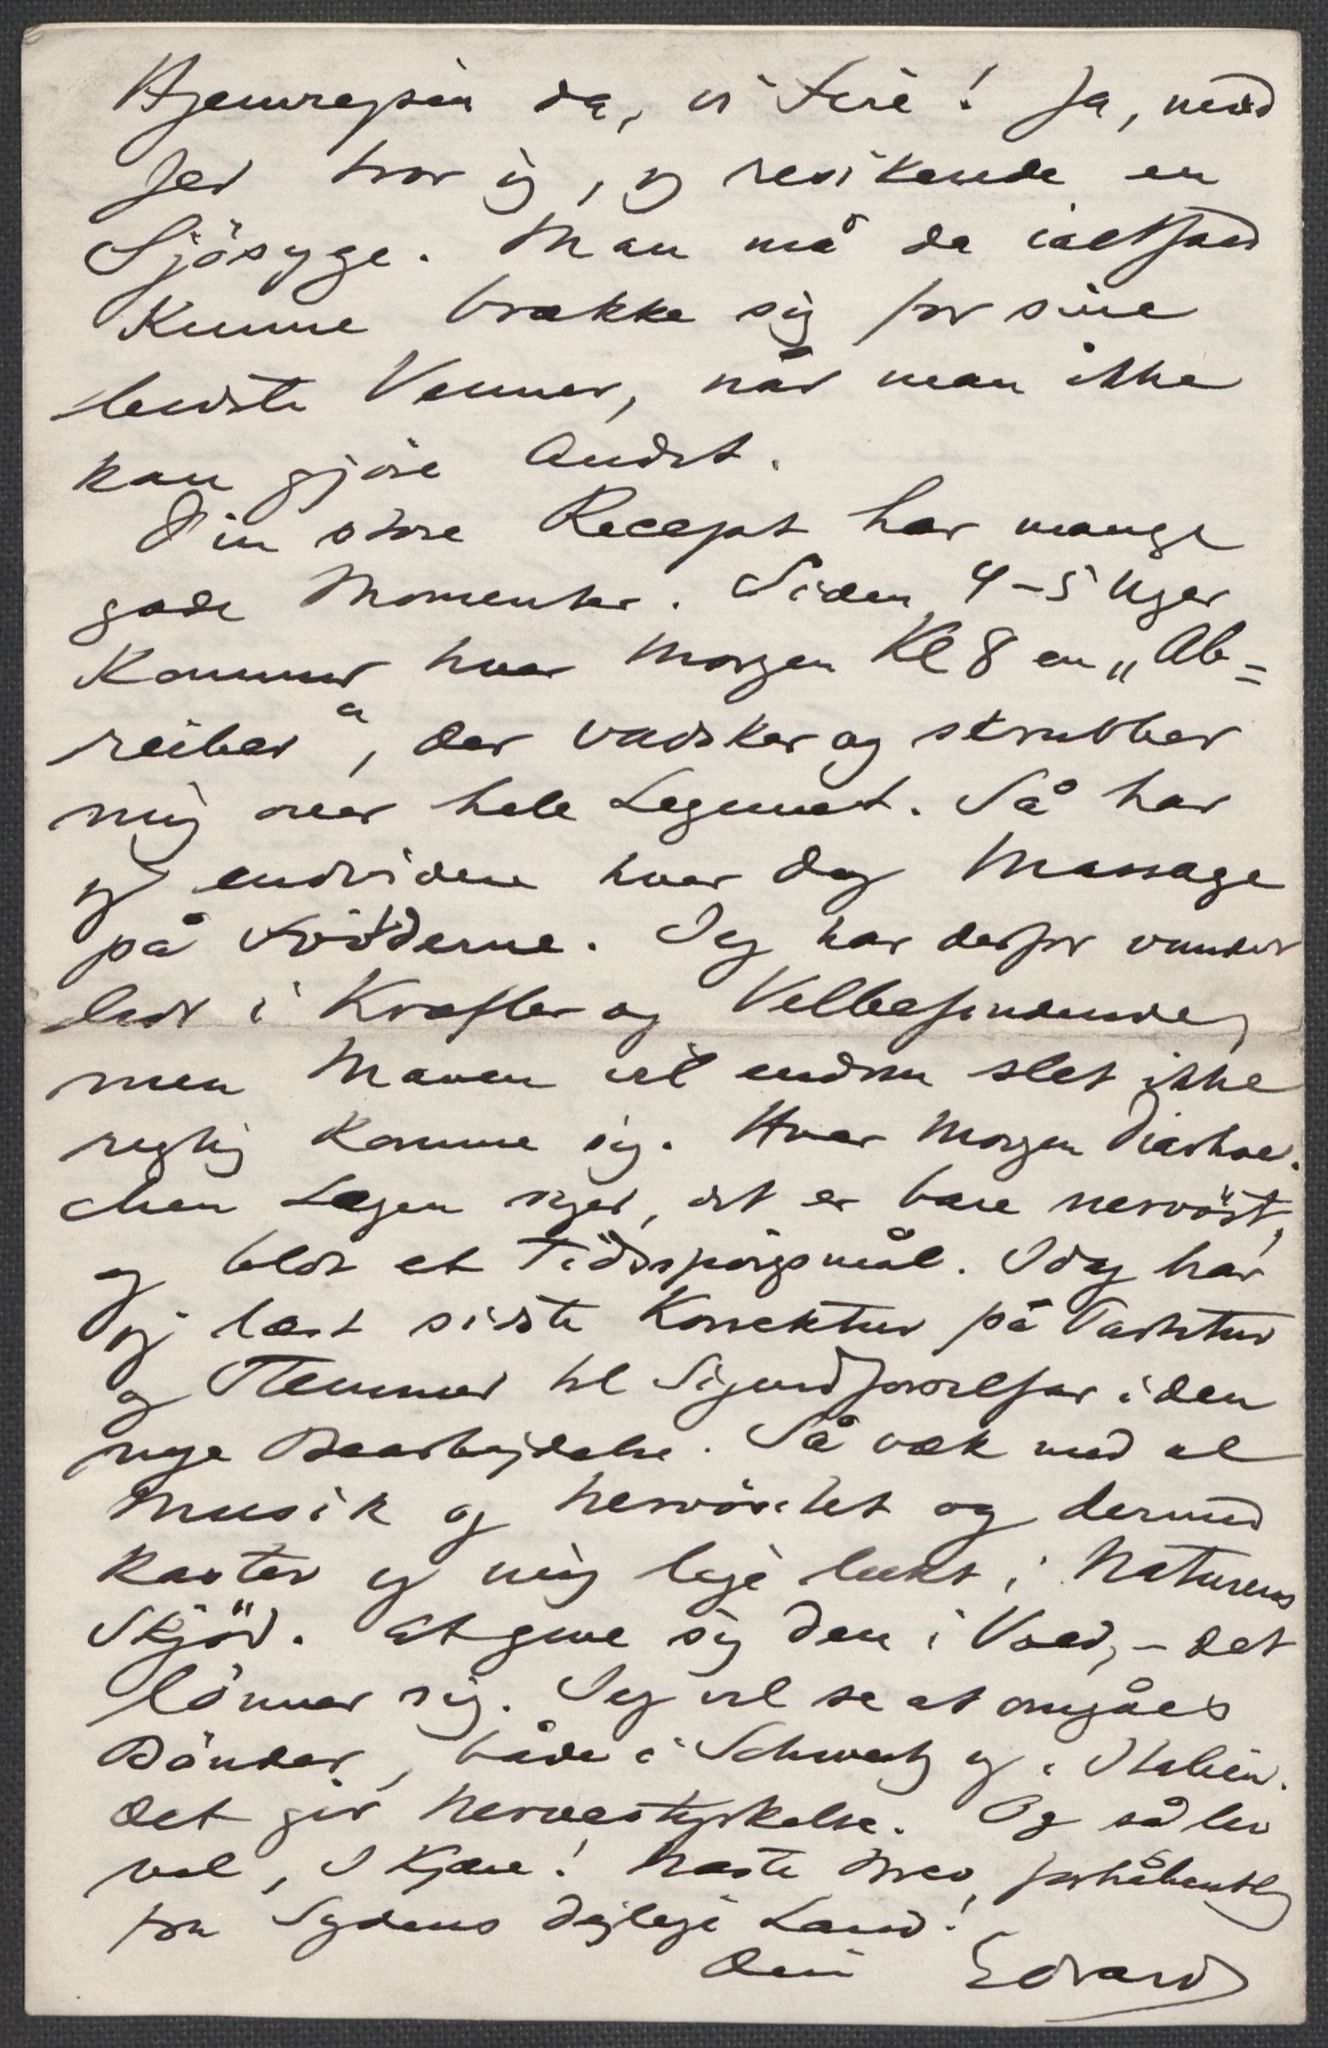 Hjemrejsen da, vi Fire! Ja, med
Jer tror jeg, jeg resikerede en
Sjösyge. Man må da ialtfald
kunne brække sig for sine
bedste Venner, når man ikke
kan gjöre Andet.
Din store Recept har mange
gode Momenter. Siden 4-5 Uger
kommer hver Morgen Kl 8 en „Ab=
reiber“, der vadsker og skrubber
mig over hele Legemet. Så har
jeg endvidere hver Dag Massage
på Födderne. Jeg har derfor vundet
lidt i Kræfter og Velbefindende,
men Maven vil endnu slet ikke
rigtig komme sig. Hver Morgen Diarhoe.
Men Lægen siger, det er bare nervöst,
og blot et Tidsspörgsmål. Idag har
jeg læst sidste Korrektur på Partitur
og Stemmer til Sigurd Jorsalfar i den
nye Bearbejdelse. Så væk med al
Musik og Nervösitet og dermed
kaster jeg mig lige lukt i Naturens
Skjöd. At give sig den i Vold, – det
lönner sig. Jeg vil se at omgåes
Bönder, både i Schweitz og i Italien.
Det gir Nervestyrkelse. Og så lev
vel, I Kjære! Næste Brev forhåbentlig
fra Sydens dejlige Land!
Din Edvard